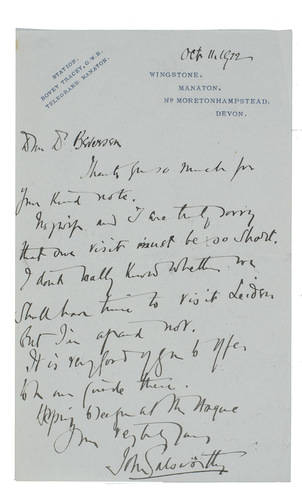 STATION,
BOVEY TRACEY, G.W.R.
TELEGRAMS, MANATON.
Oct 11. 1922
WINGSTONE,
MANATON,
Nr MORETONHAMPSTEAD,
DEVON.
Dear Dr
Thank you so much for
your kind note.
My wife and I are truly sorry
that our visit must be so short.
I don't really know whether we
shall have time to visit Leiden
But I'm afraid not.
It is very good of you to offer
to be our guide there.
Hoping to see you at The Hague
Yours very truly
John Galsworthy